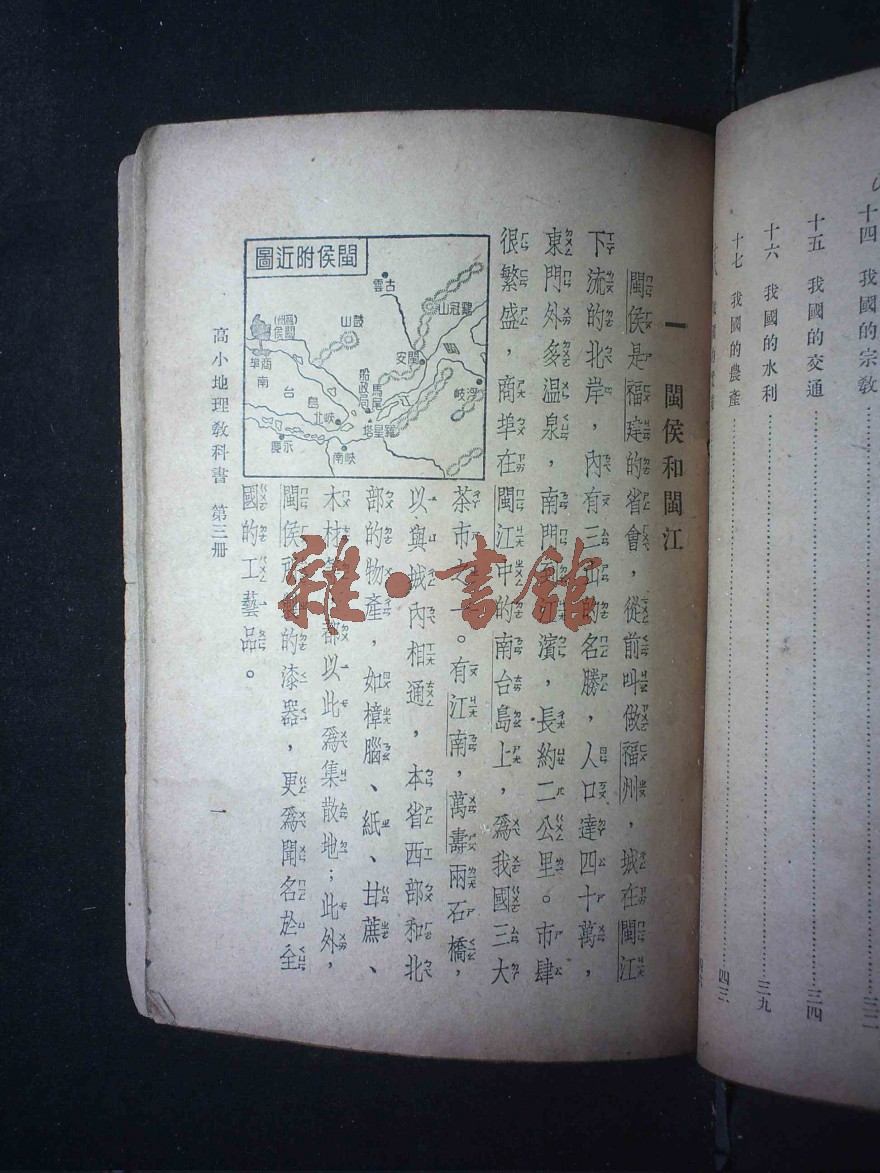 十四 我國的宗教……三二
十五 我國的交通……三四
十六 我國的水利……三九
十七 我國的農產……四三
一 閩侯和閩江
閩侯是福建的省會，從前叫做福州，城在閩江
下流的北岸，內有三山的名勝，人口達四十萬，
東門外多温泉，南門到江濱，長約二公里。市肆
很繁盛，商埠在閩江中的南台島上，爲我國三大
茶市之一。有江南，萬壽兩石橋，
以與城內相通，本省西部和北
部的物產，如樟腦、紙、甘蔗、
木材等，都以此爲集散地；此外，
閩侯所製的漆器，更爲聞名於全
國的工藝品。
閩侯附近圖
古雲
雞冠山
鼓山
閩侯
(福州)
閩安
商埠
船政局
馬尾
浮岐
南台島
峽北
羅星塔
峽南
永慶
高小地理教科書 第三册
一
雜·書館